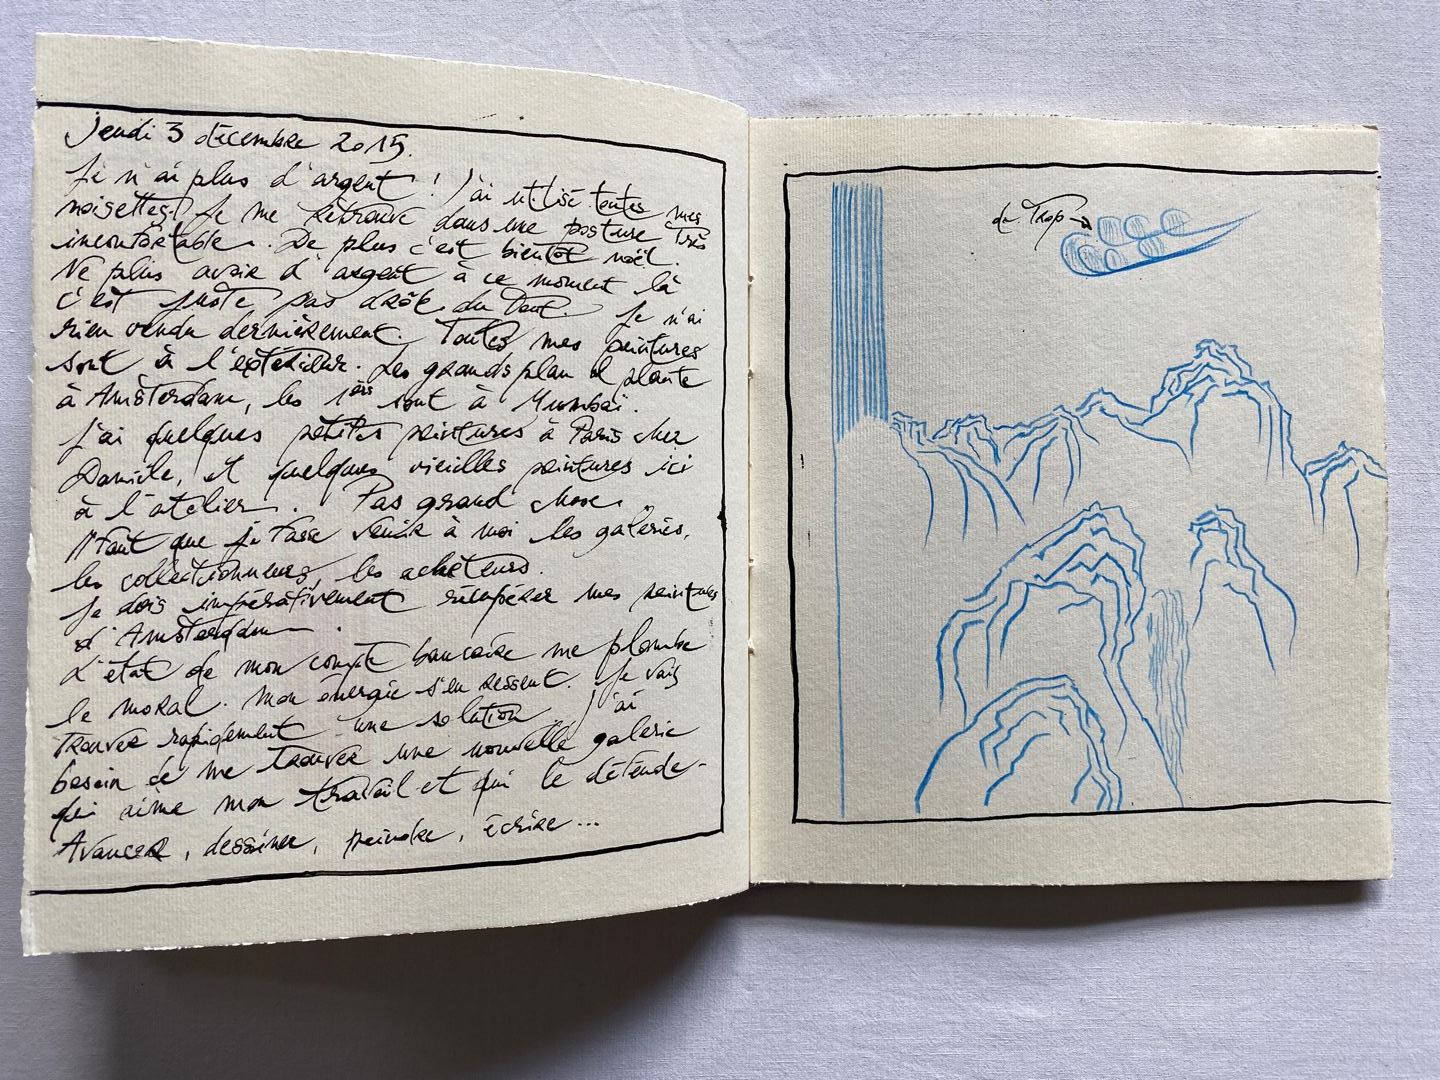 Jeudi 3 décembre 2015.
Je n'ai plus d'argent ! J'ai utilisé toutes mes
noisettes. Je me retrouve dans une posture très
inconfortable. De plus c'est bientôt noël.
Ne plus avoir d'argent à ce moment là
c'est juste pas drôle du tout. Je n'ai
rien vendu dernièrement. Toutes mes peintures
sont à l'extérieur. Les grands plan plante
à Amsterdam, les sont à Mumbaï.
J'ai quelques petites peintures à Paris chez
Danièle, et quelques vieilles peintures ici
à l'atelier. Pas grand chose.
Il faut que je fasse venir à moi les galeries,
les collectionneurs, les acheteurs.
Je dois impérativement récupérer mes peintures
d'Amsterdam.
L'état de mon compte bancaire me plombe
le moral. Mon énergie s'en ressent. Je vais
trouver rapidement une solution. J'ai
besoin de me trouver une nouvelle galerie
qui aime mon travail et qui le défende.
Avancer, dessiner, peindre, écrire...
de trop